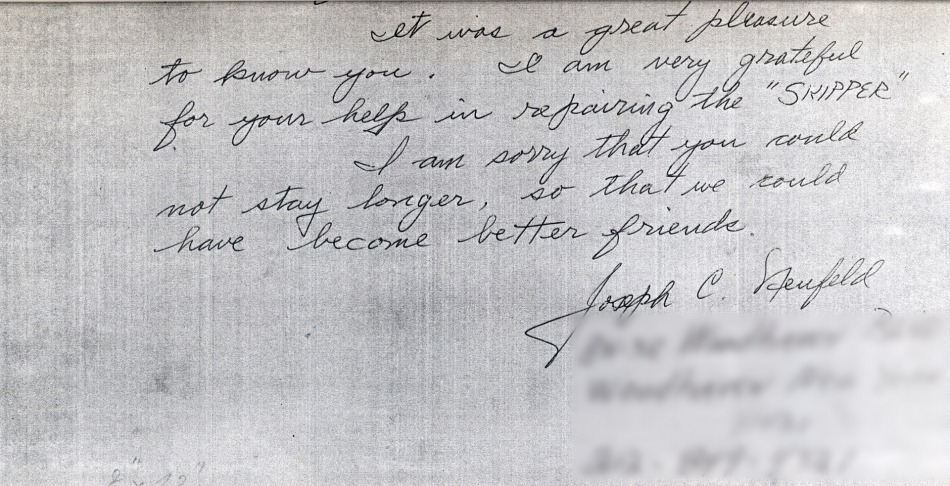 It was a great pleasure
to know you. I am very grateful
for your help in repairing the "SKIPPER"
I am sorry that you could
not stay longer, so that we could
have become better friends.
Joseph C.